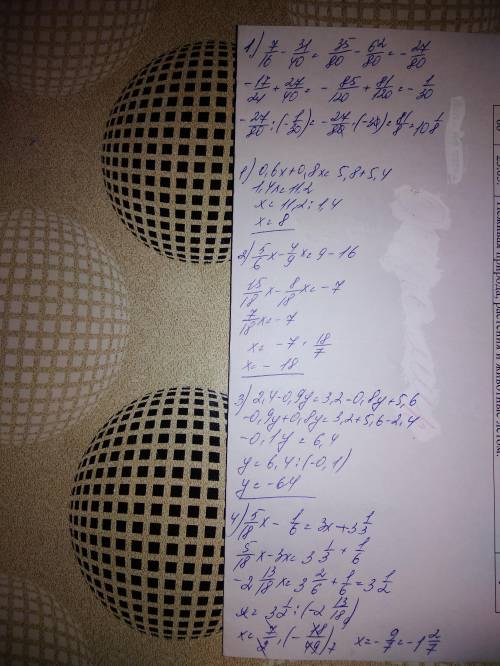 1) 7/16 - 31/40 = 35/80 - 62/80 = - 27/80
- 17/24 + 27/40 = - 85/120 + 81/120 = - 1/30
- 27/80 : (- 1/30) = - 27/80 · (-30) = 81/8 = 10 1/8
1) 0,6x+0,8x=5,8+5,4
1,4x=11,2
x=11,2:1,4
x=8
2) 5/6 x - 4/9 x = 9 - 16
15/18 x - 8/18 x = -7
7/18 x = -7
x = -7 · 18/7
x = - 18
3) 2,4-0,9y=3,2-0,8y+5,6
-0,9y+0,8y=3,2+5,6-2,4
-0,1y=6,4
y=6,4:(-0,1)
y=-64
4) 5/18 x - 1/6 = 3x + 3 1/3
5/18 x - 3x = 3 1/3 + 1/6
-2 13/18 x = 3 2/6 + 1/6 = 3 1/2
x = 3 1/2 : (-2 13/18)
x = 7/2 · (- 18/49) x = - 9/7 = -1 2/7